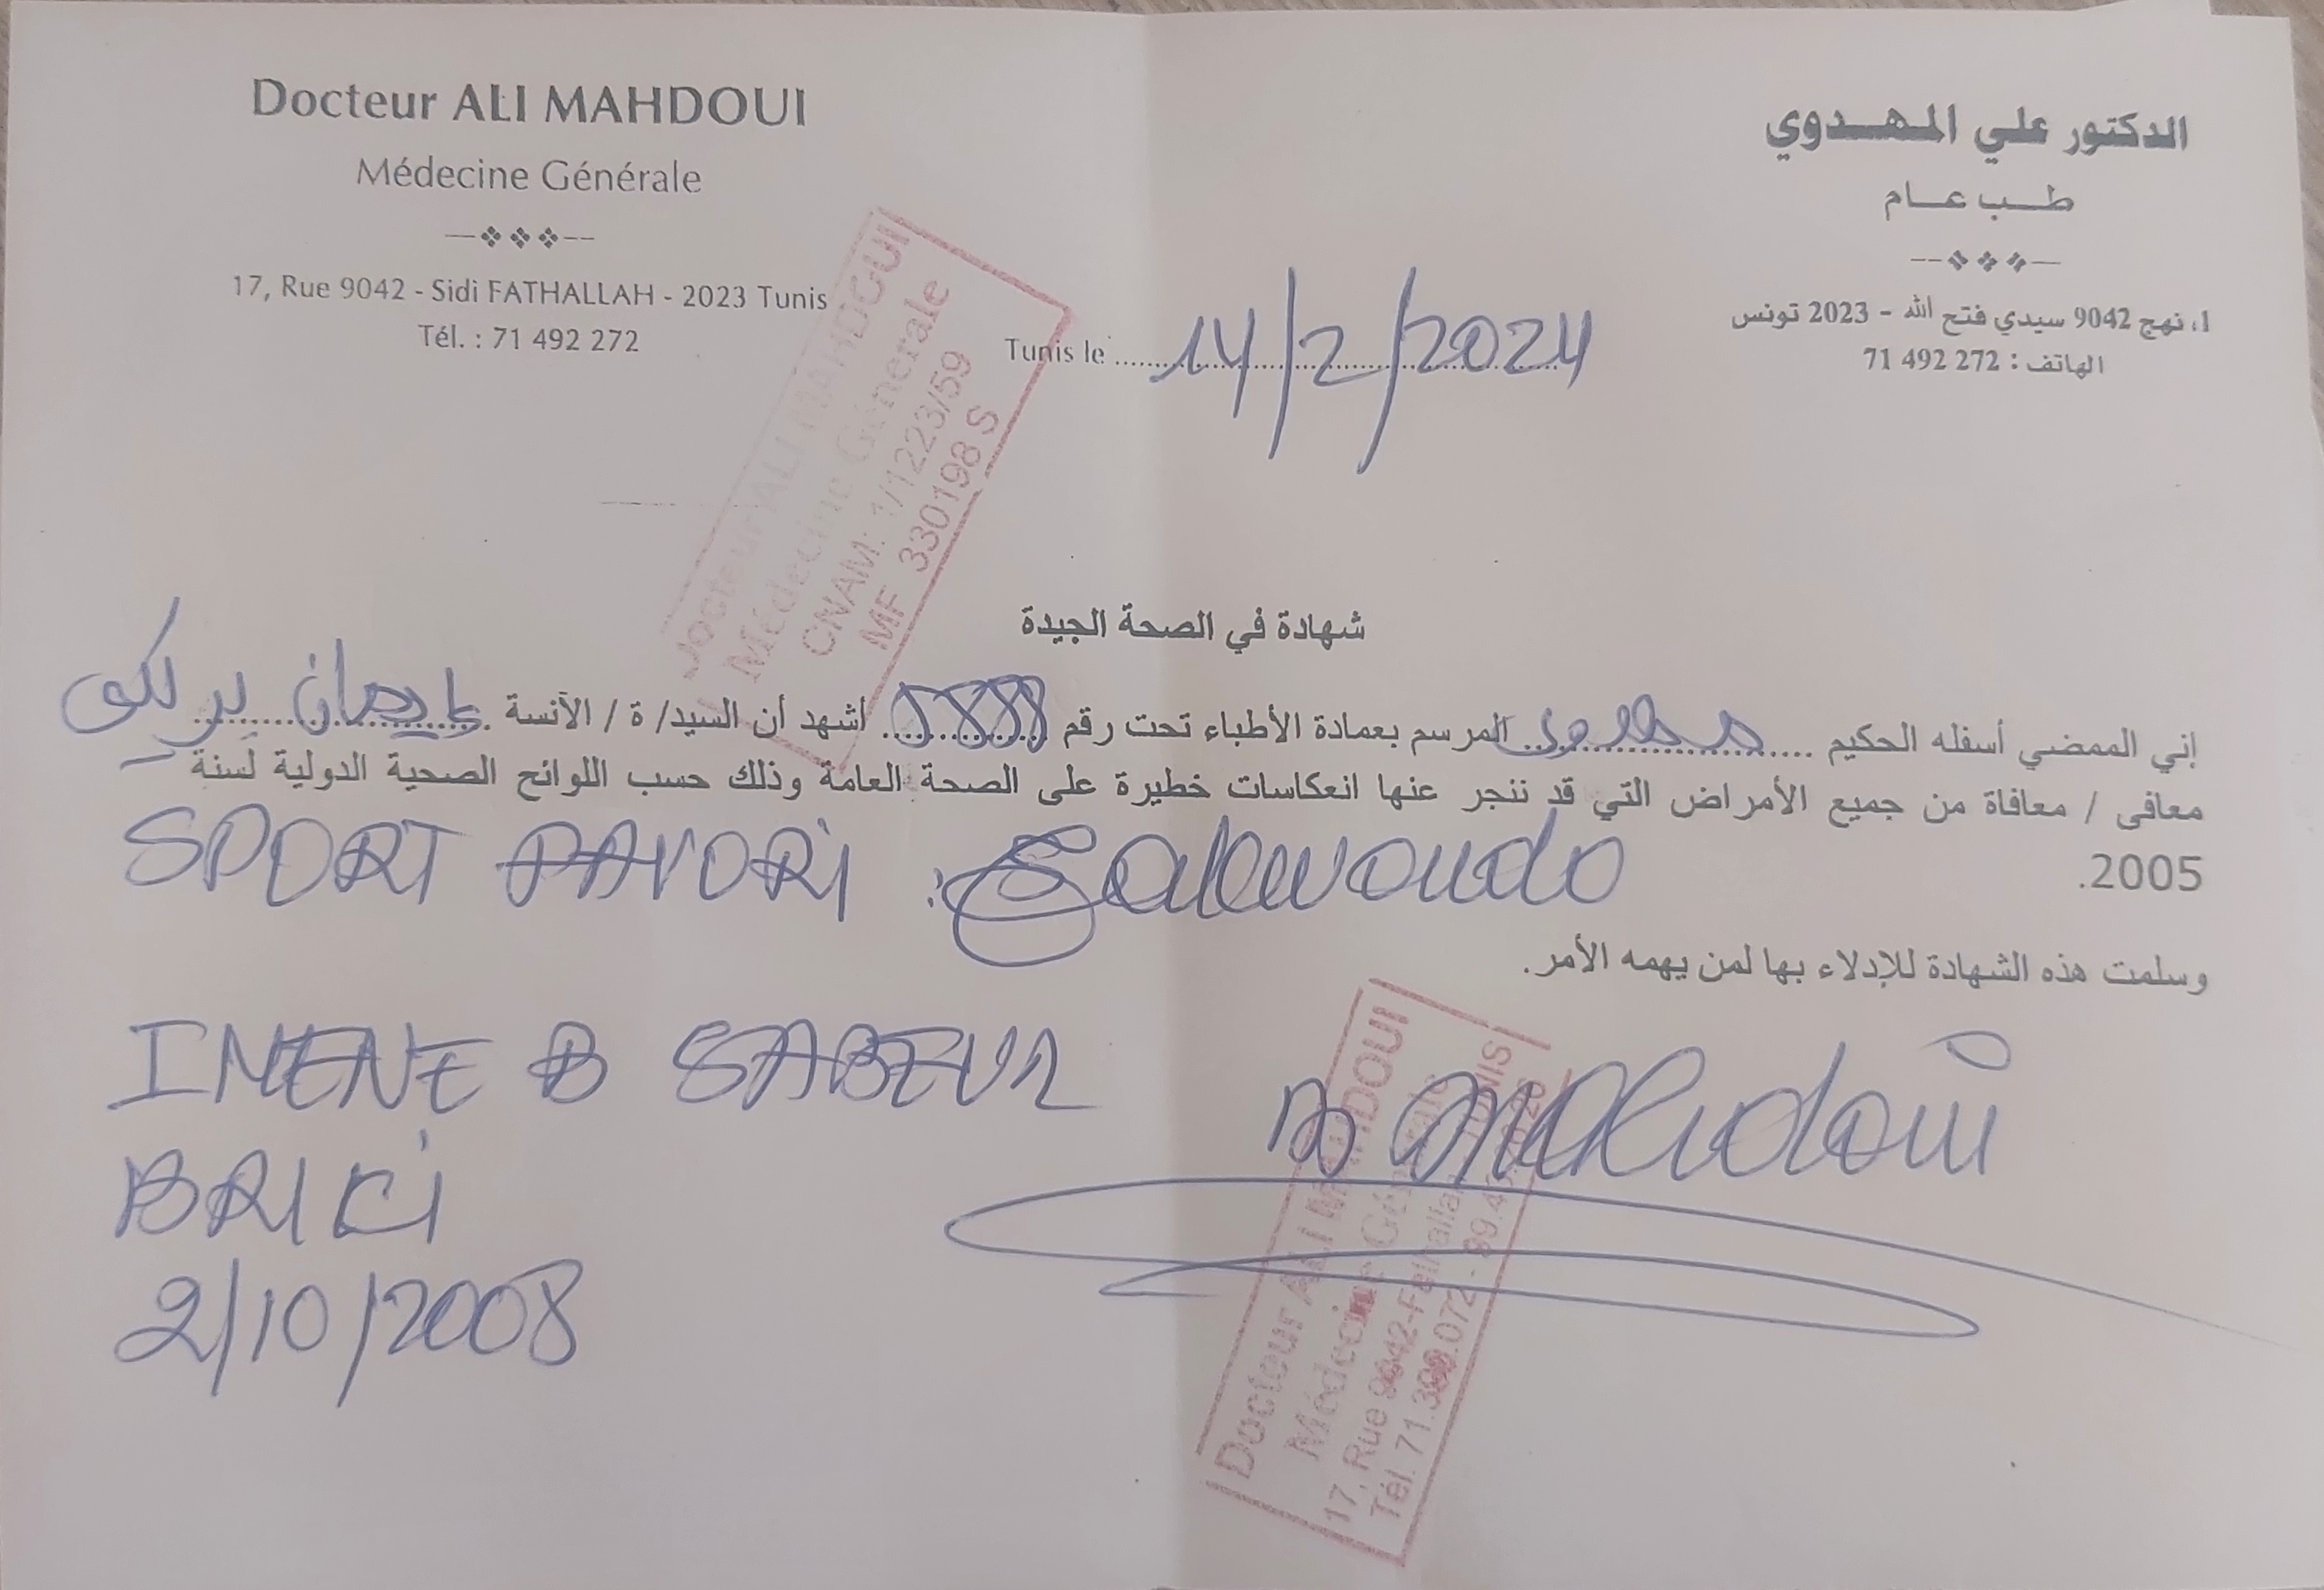 Docteur ALI MAHDOUI
Médecine Générale
17, Rue 9042 - Sidi FATHALLAH - 2023 Tunis
Tél. : 71 492 272
الدكتور علي المهدوي
طب عام
1، نهج 9042 سيدي فتح الله - 2023 تونس
الهاتف : 272 492 71
Tunis le 14/2/2024
Docteur ALI MAHDOUI
Médecine Générale
CNAM: 1/1223/59
MF 330198 S
شهادة في الصحة الجيدة
إني الممضي أسفله الحكيم المرسم بعمادة الأطباء تحت رقم أشهد أن السيد/ ة / الآنسة
معافى / معافاة من جميع الأمراض التي قد ننجر عنها انعكاسات خطيرة على الصحة العامة وذلك حسب اللوائح الصحية الدولية لسنة
2005.
SPORT FAVORI : Taekwondo
وسلمت هذه الشهادة للإدلاء بها لمن يهمه الأمر.
IMENE B SABEUR
BRIKI
2/10/2008
Dr Mahdoui
Docteur ALI MAHDOUI
Médecine Générale
17, Rue 9042-Fathallah TUNIS
Tél. 71.390.072